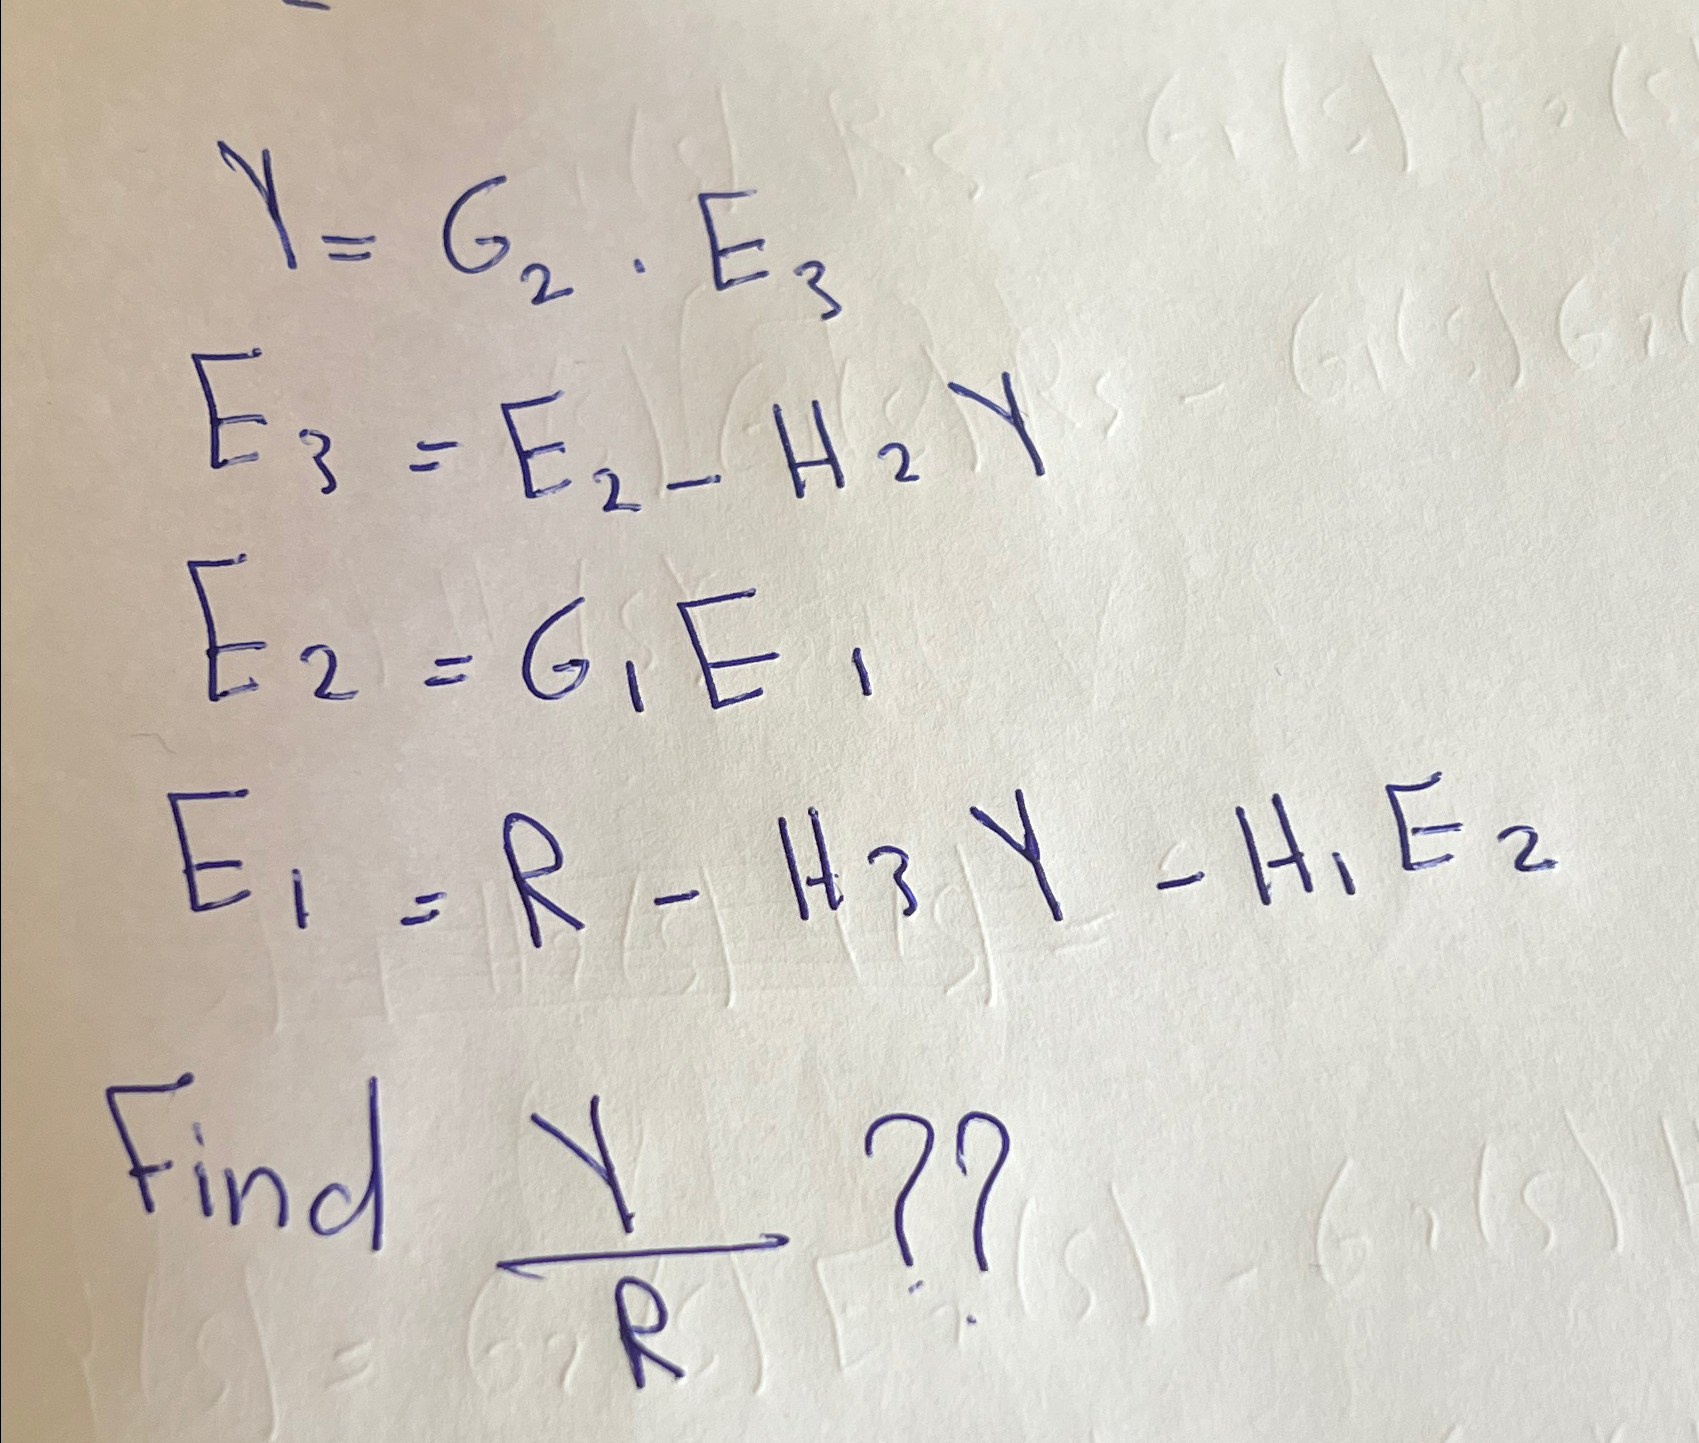 Y = G₂ . E₃
E₃ = E₂ - H₂ Y
E₂ = G₁ E₁
E₁ = R - H₃ Y - H₁ E₂
Find Y/R ??